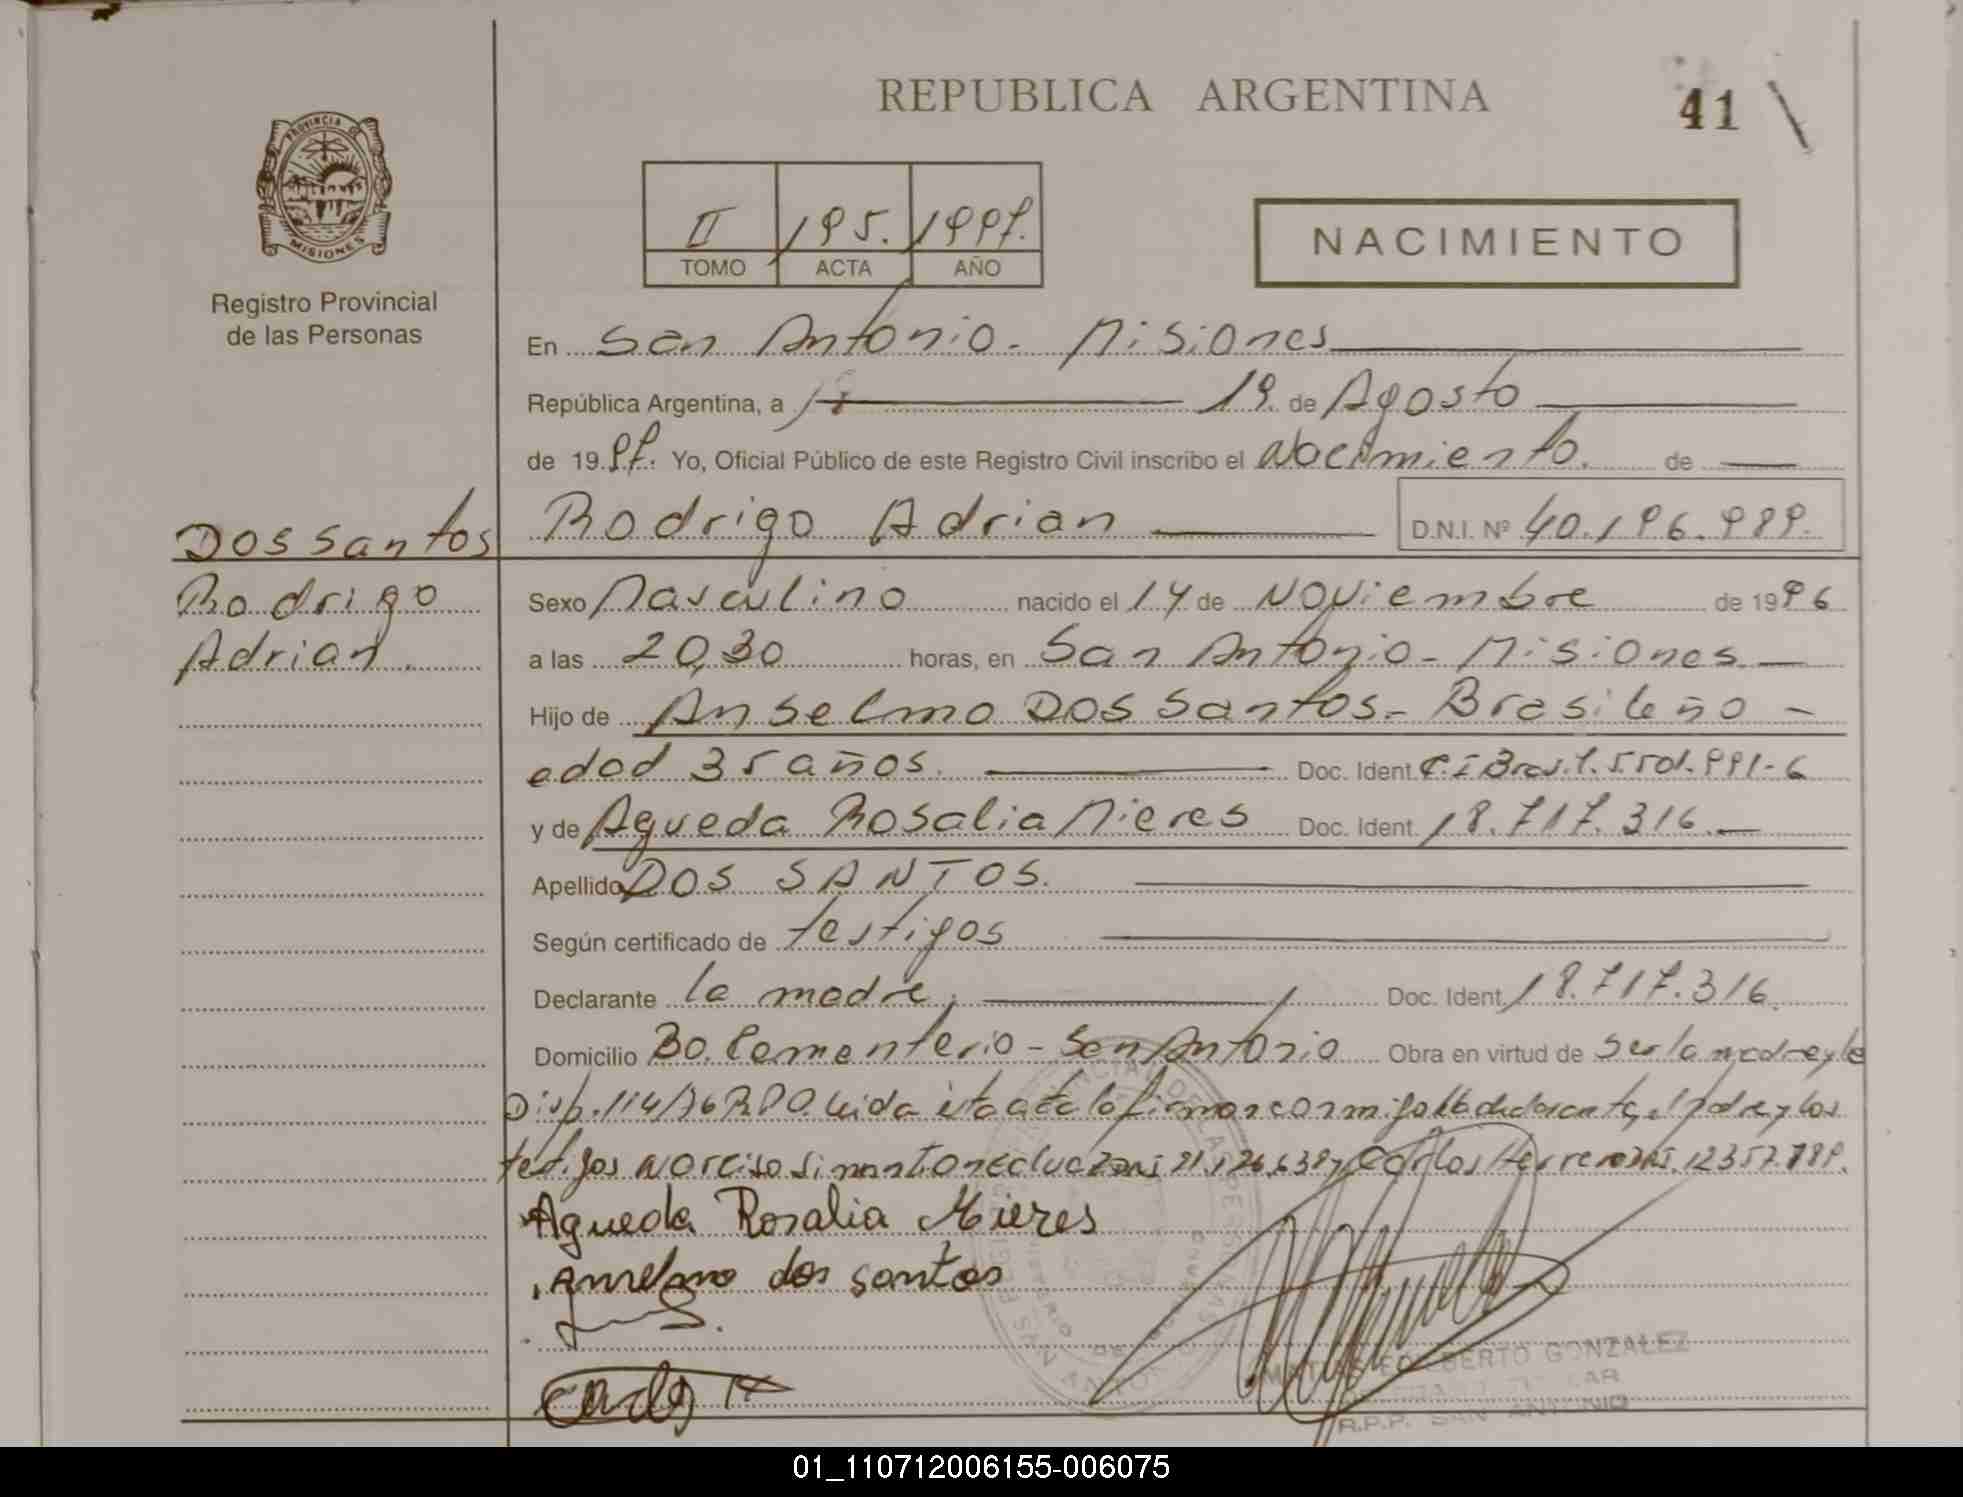 REPUBLICA ARGENTINA
41
PROVINCIA DE
MISIONES
Registro Provincial
de las Personas
II 195. 1997.
TOMO ACTA AÑO
NACIMIENTO
En San Antonio - Misiones
República Argentina, a 19. de Agosto
de 19.97. Yo, Oficial Público de este Registro Civil inscribo el Nacimiento. de
Dos Santos
Rodrigo
Adrian.
Rodrigo Adrian D.N.I. Nº 40.196.989.
Sexo Masculino nacido el 14 de Noviembre de 1996
a las 20,30 horas, en San Antonio - Misiones
Hijo de Anselmo Dos Santos - Brasileño -
edad 35 años. Doc. Ident C.I Brasil.5.501.991-6
y de Agueda Rosalia Mieres Doc. Ident 18.717.316.
Apellido DOS SANTOS.
Según certificado de testigos
Declarante la madre, Doc. Ident. 18.717.316.
Domicilio Bo. Cementerio - San Antonio Obra en virtud de ser la madre y la
Disp. 114/76 R.P.P. Leida esta acta la firman conmigo la declarante, el padre y los
testigos Narciso 21.126.639 y Carlos Herrera DNI. 12357.789.
Agueda Rosalia Mieres
Anselmo dos santos
GONZALEZ
R.P.P. SAN ANTONIO
01_110712006155-006075